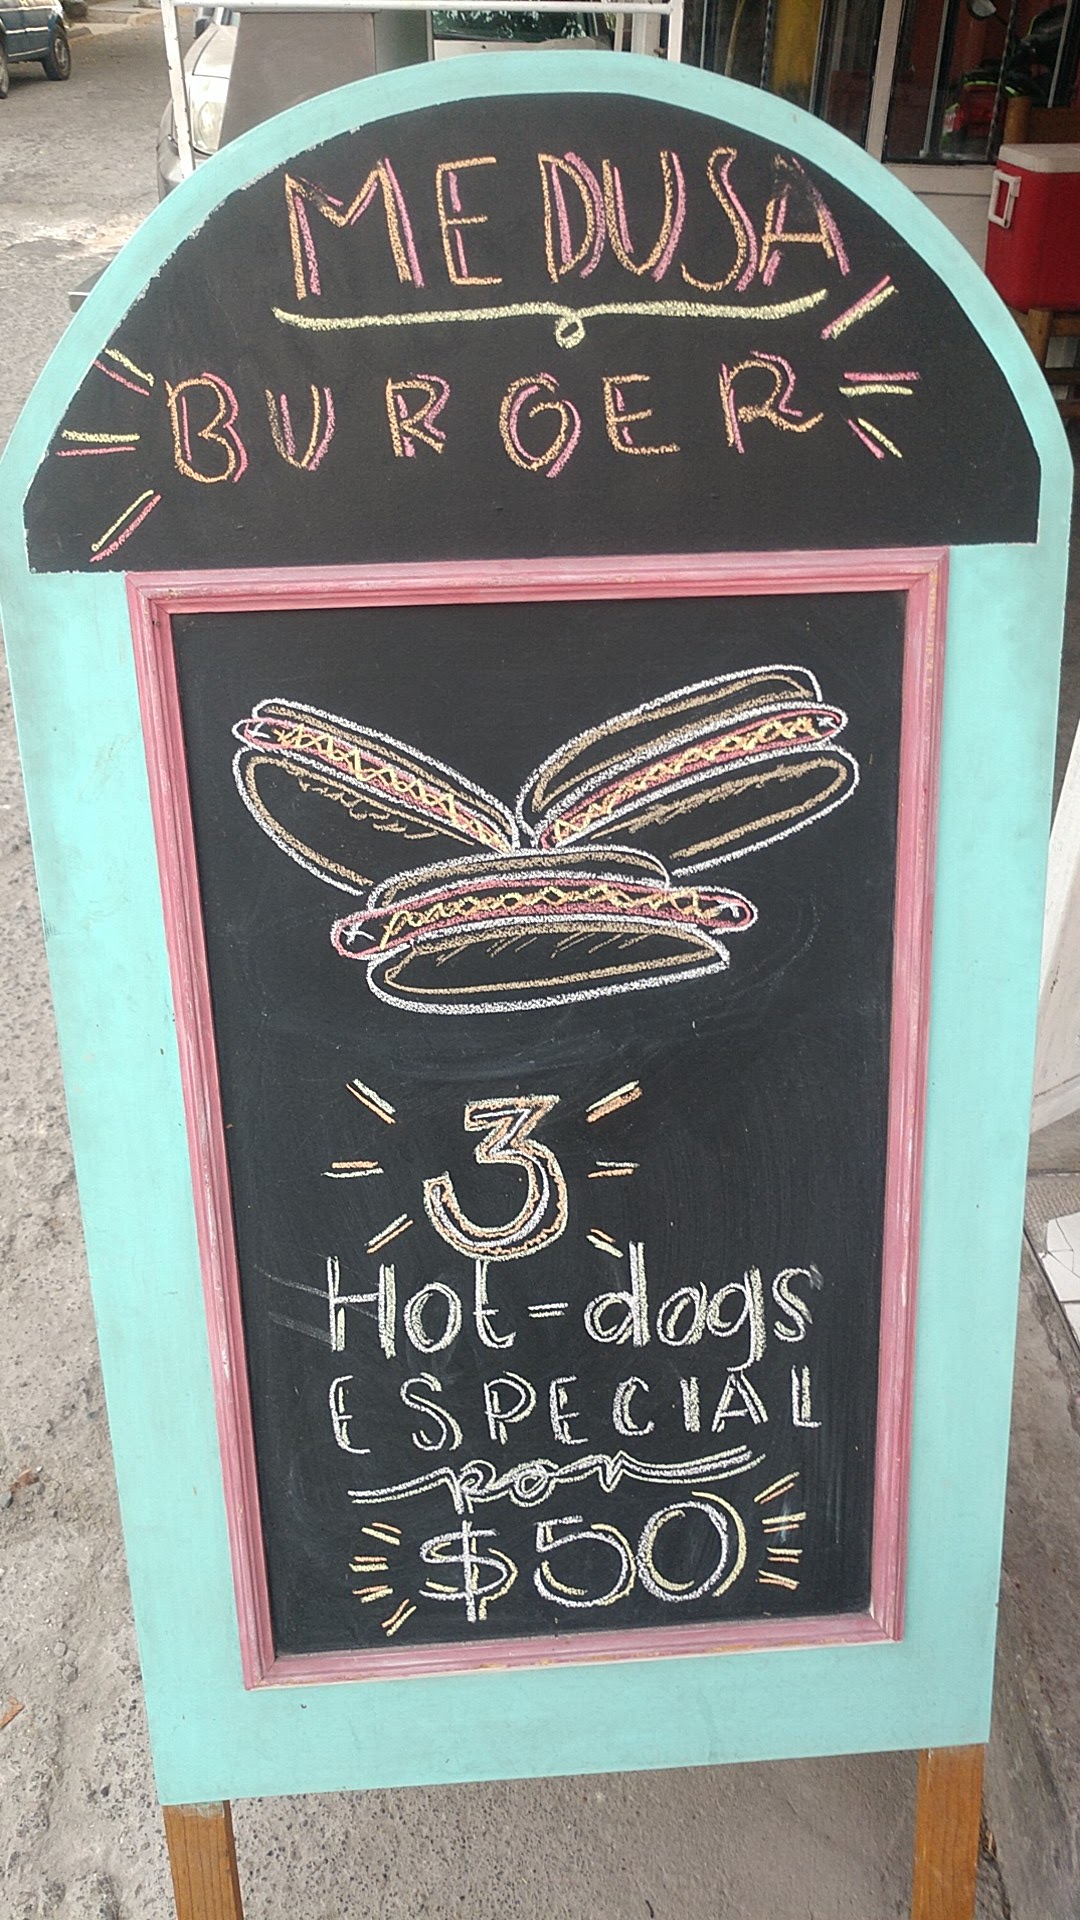 MEDUSA
BURGER
3
Hot-dogs
ESPECIAL
por
$50